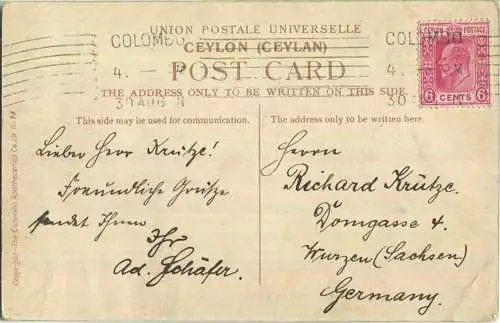 UNION POSTALE UNIVERSELLE
CEYLON (CEYLAN)
POST CARD
THE ADDRESS ONLY TO BE WRITTEN ON THIS SIDE.
COLOMBO
4.
30 AUG
COLOMBO
4.
30
POSTAGE
6 CENTS 6
This side may be used for communication.
The address only to be written here.
Lieber Herr Krütze!
Freundliche Grütze
sendet Ihnen
Ihr
Ad. Schäfer.
Herrn
Richard Krütze.
Domgasse 4.
Wurzen (Sachsen)
Germany.
Copyright—The Colombo Apothecaries Co., Ld.